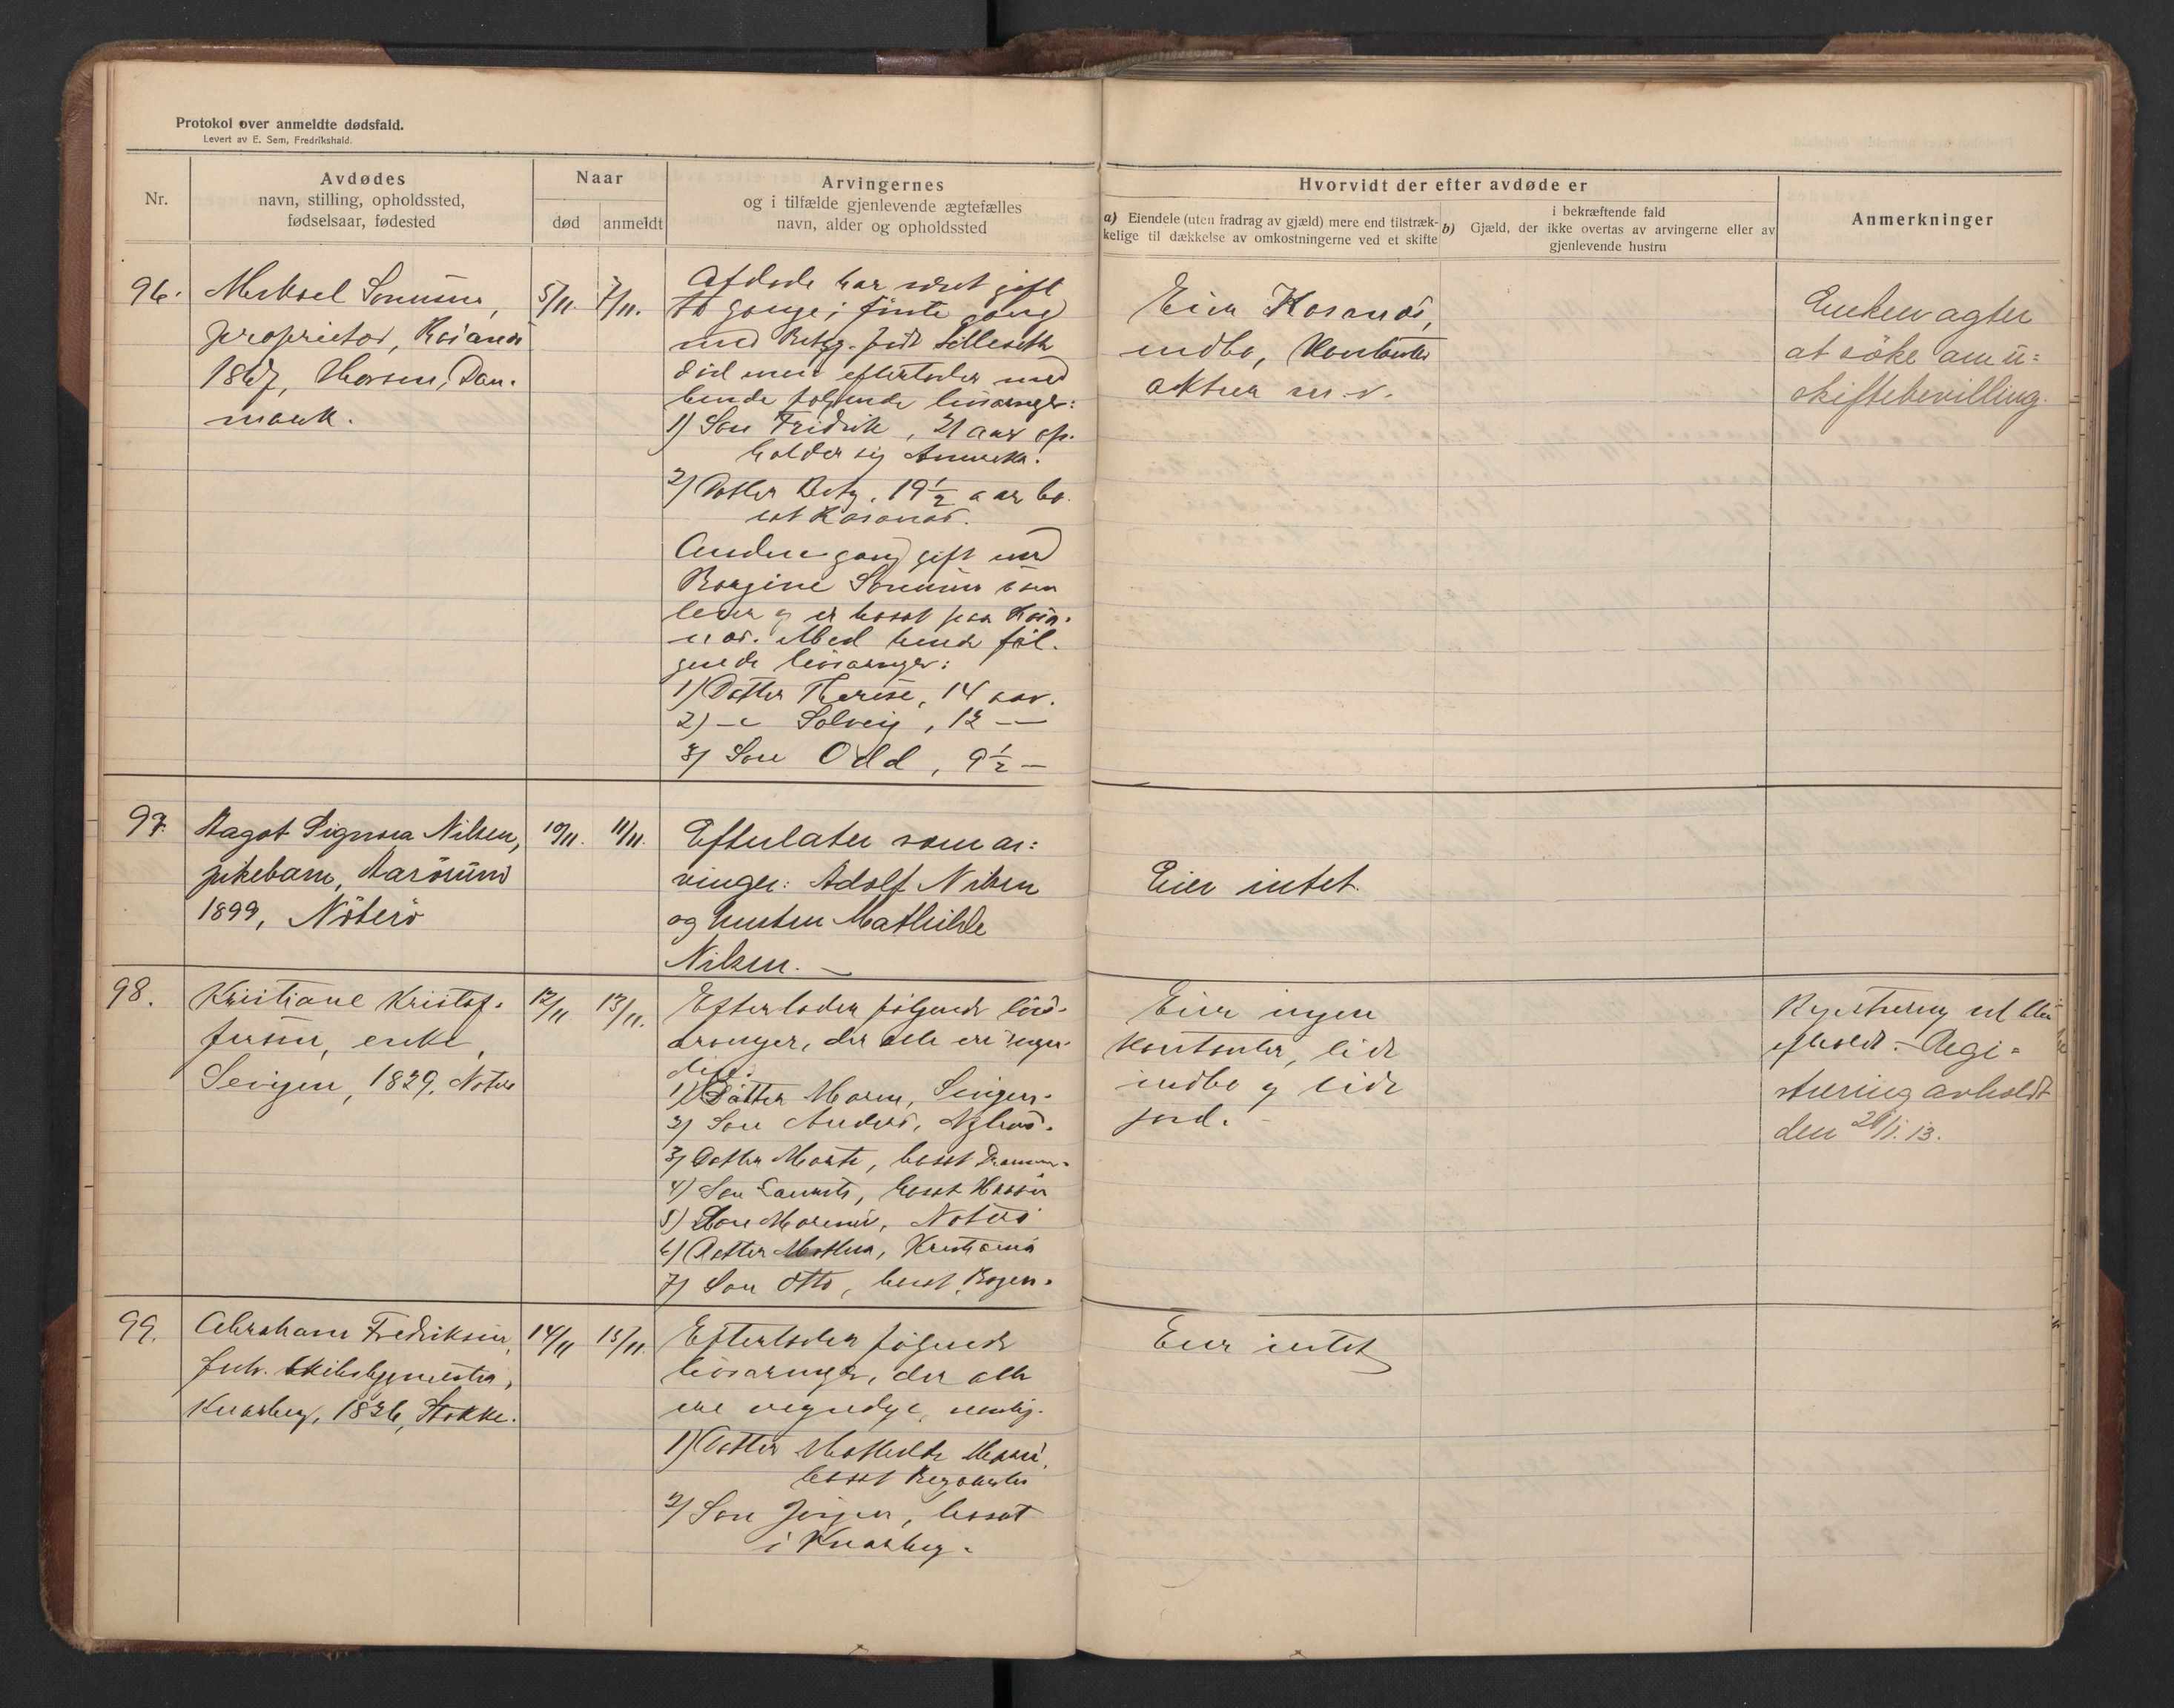 Protokol over anmeldte dødsfald.
Levert av E. Sem, Fredrikshald.
Nr.
Avdødes
navn, stilling, opholdssted,
fødselsaar, fødested
Naar
død
anmeldt
Arvingernes
og i tilfælde gjenlevende ægtefælles
navn, alder og opholdssted
Hvorvidt der efter avdøde er
a) Eiendele (uten fradrag av gjæld) mere end tilstræk-
kelige til dækkelse av omkostningerne ved et skifte
i bekræftende fald
b) Gjæld, der ikke overtas av arvingerne eller av
gjenlevende hustru
Anmerkninger
96.
proprietær,
1867, Horsens, Dan-
mark.
5/11.
7/11.
Afdøde har været gift
to gange; første gang
med
død men efterlader med
hende følgende livsarvger:
1) Søn Fredrik, 21 aar op-
holder sig Amerika.
2) Datter Betzy, 19 1/2 aar bo-
Anden gang gift med
Borgine som
lever og er bosat paa
Med hende føl-
gende livsarvger:
1) Datter Therese, 14 aar.
2) — Solveig, 12 —
3) Søn Odd, 9 1/2 —
Eier
indbo, Kontanter
aktier m.v.
Enken agter
at söke om u=
skiftebevilling.
97.
Aagot Signora Nilsen,
pikebarn, Aarösund
1899, Nöterö
10/11.
11/11.
Efterlater som ar=
vinger: Adolf Nilsen
og hustru Mathilde
Nilsen. —
Eier intet.
98.
Kristiane Kristof-
fersen, enke,
1829, Nøterø
12/11.
13/11.
Efterlader følgende livs-
arvinger, der alle ere myn-
dige:
1) Datter Maren,
2) Søn Anders,
3) Datter Marte, bosat
4) Søn Laurits, bosat
5) Søn Nøterø
6) Datter Kristiania
7) Søn Otto, bosat
Eier ingen
Kontanter, lidt
indbo og lidt
jord.
Registrering vil bli
afholdt. – Regi=
strering avholdt
den
99.
Abraham Fredriksen,
forh. skibsbygmester,
Knarberg, 1826, Stokke.
14/11
15/11.
Efterlader følgende
livsarvinger, der alle
ere myndige, nemlig:
1) Datter Mathilde
bosat
2) Søn Jørgen, bosat
i Knarberg.
Eier intet